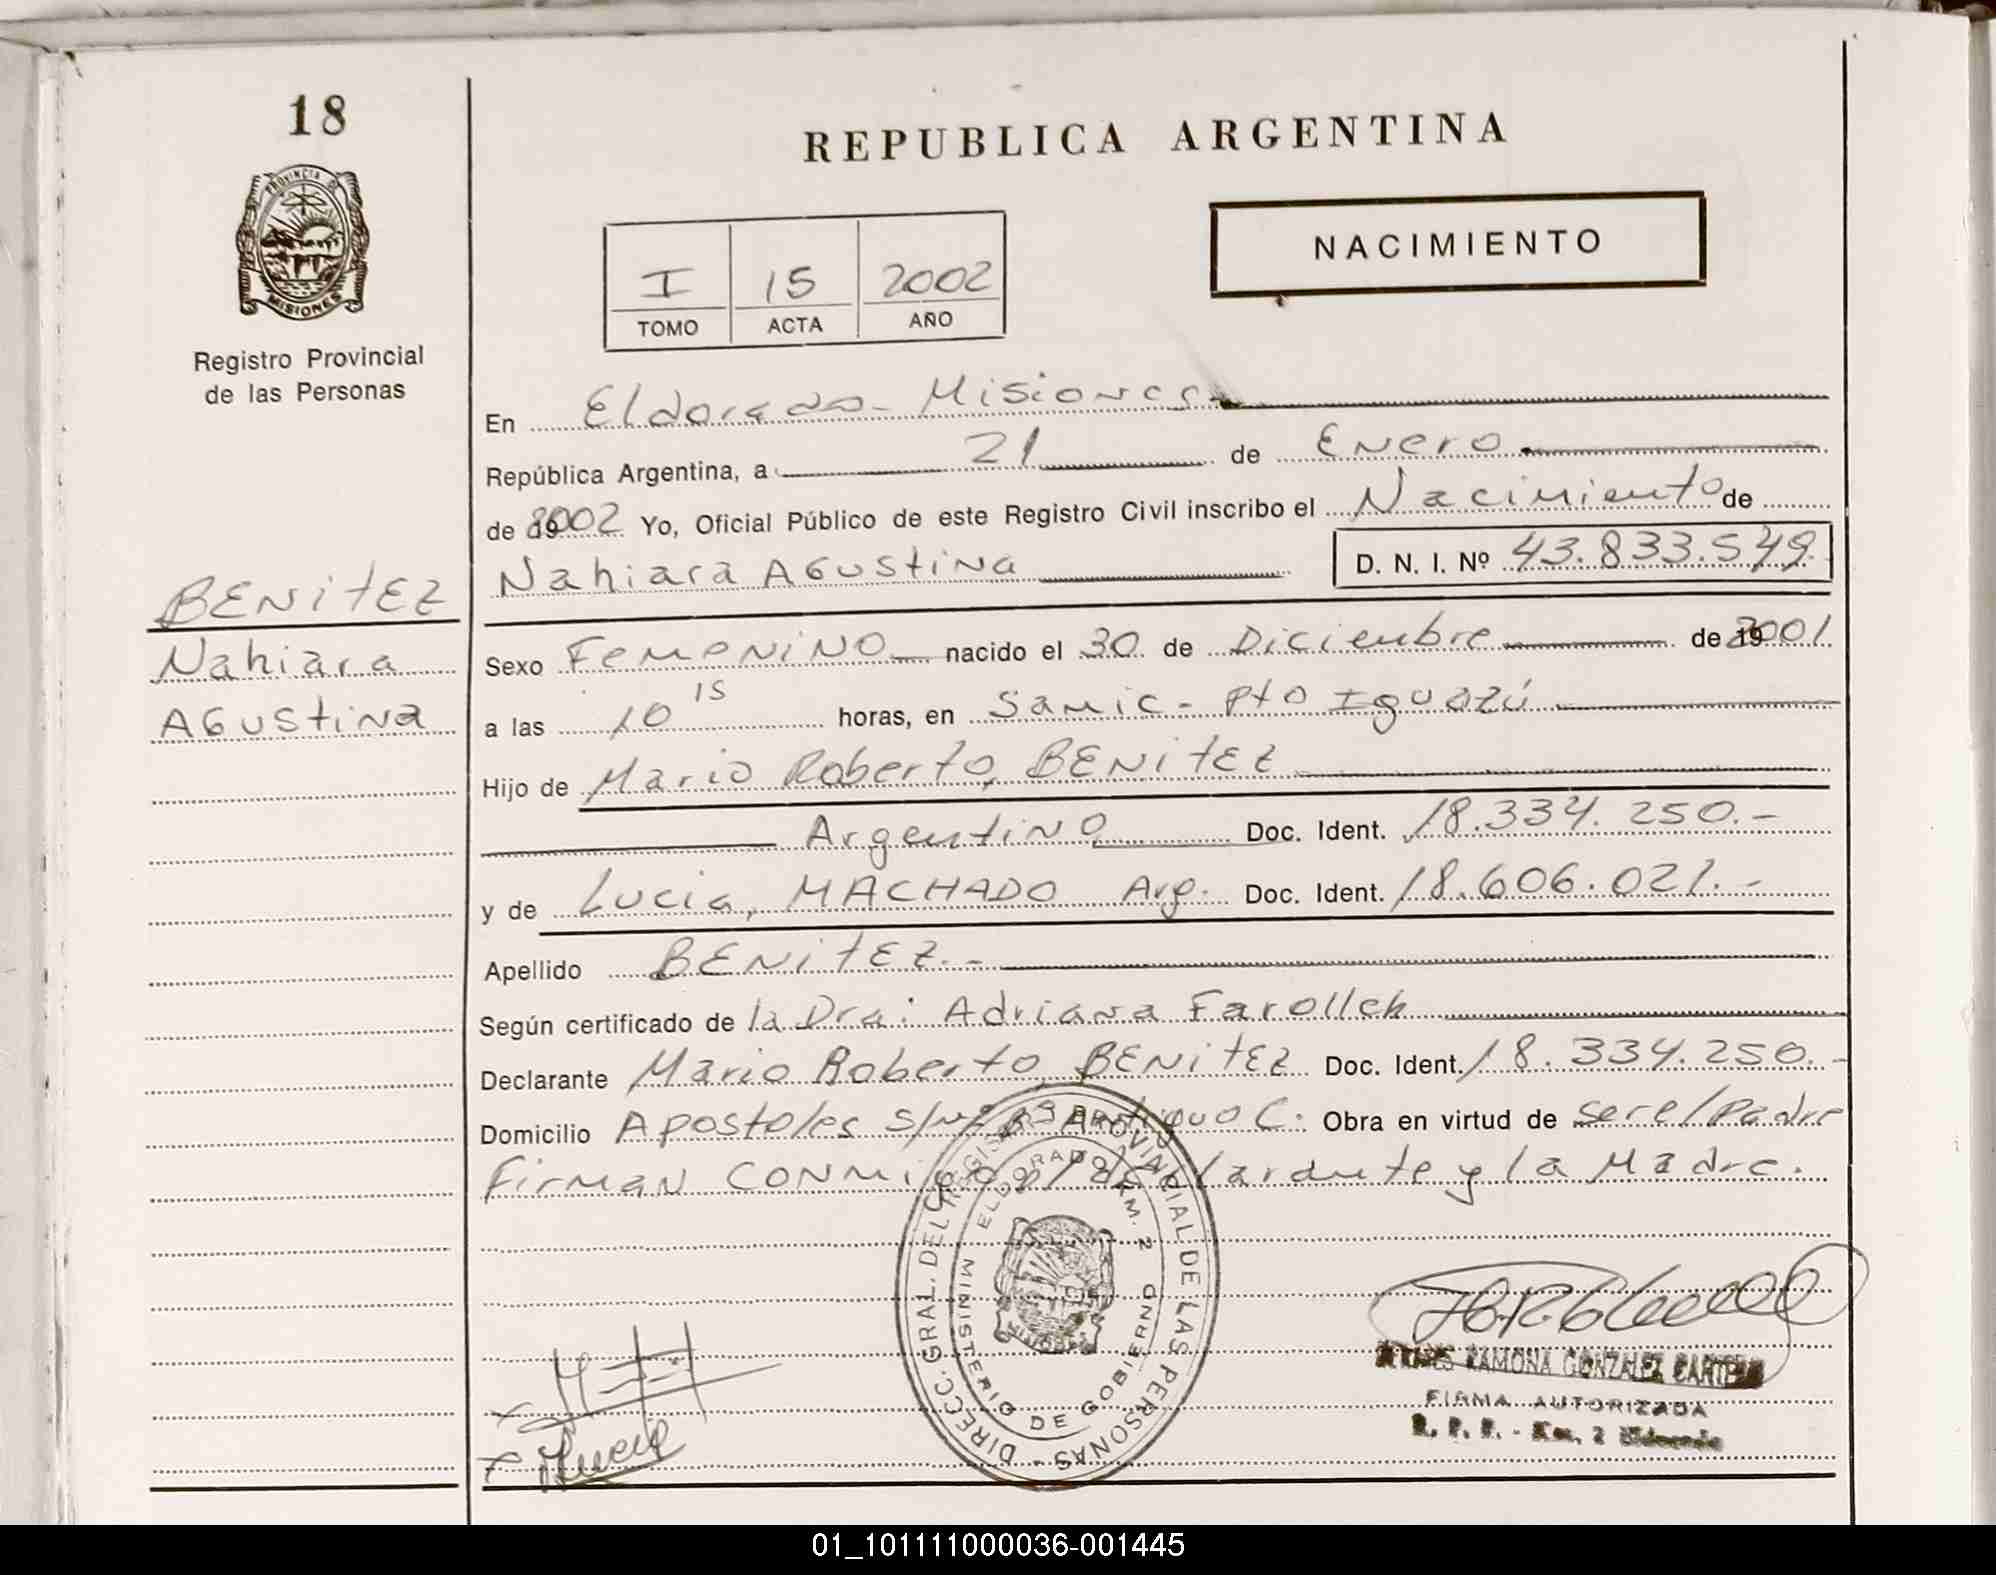 18
PROVINCIA DE
MISIONES
Registro Provincial
de las Personas
BENITEZ
Nahiara
Agustina
REPUBLICA ARGENTINA
NACIMIENTO
I 15 2002
TOMO ACTA AÑO
En Eldorado - Misiones
República Argentina, a 21 de Enero
de 2002 Yo, Oficial Público de este Registro Civil inscribo el Nacimiento de
Nahiara Agustina D. N. I. Nº 43.833.549.
Sexo Femenino nacido el 30 de Diciembre de 2001.
a las 10 15 horas, en Samic - Pto Iguazú
Hijo de Mario Roberto, BENITEZ
Argentino Doc. Ident. 18.334.250.-
y de Lucia, MACHADO Arg. Doc. Ident. 18.606.021.-
Apellido BENITEZ.-
Según certificado de la Dra: Adriana
Declarante Mario Roberto, BENITEZ Doc. Ident. 18.334.250.-
Domicilio Apostoles s/nº Bº Antiguo C. Obra en virtud de ser el Padre
Firman conmigo el declarante y la Madre.
DIRECC. GRAL. DEL REGISTRO PROVINCIAL DE LAS PERSONAS -
ELDORADO KM. 2
MINISTERIO DE GOBIERNO
Lucia
RAMONA GONZALEZ
FIRMA AUTORIZADA
R. P. P. - Km. 2 Eldorado
01_101111000036-001445